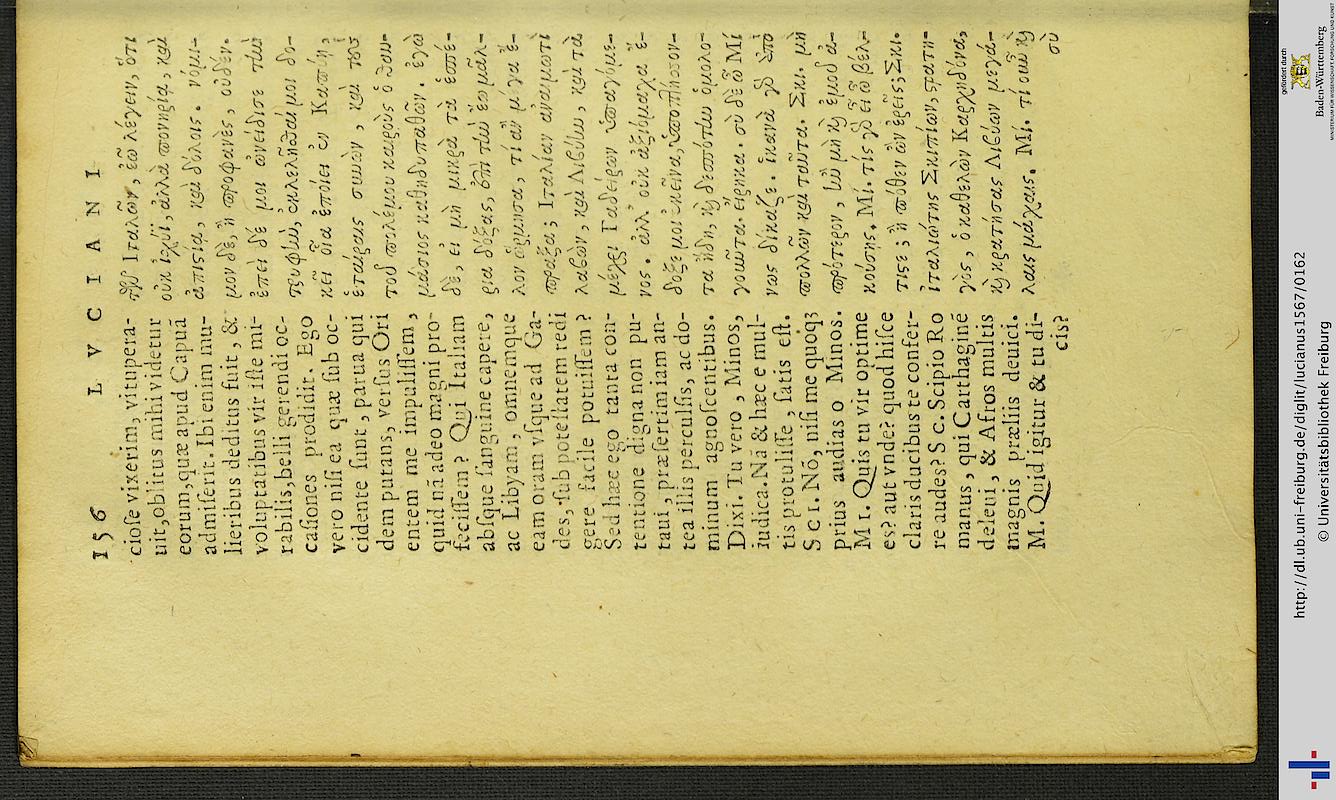 156 LVCIANI
ciose vixerim, vitupera-
uit, oblitus mihi videtur
eorum, quæ apud Capuã
admiserit. Ibi enim mu-
lieribus deditus fuit, &
voluptatibus vir iste mi-
rabilis, belli gerendi oc-
casiones prodidit. Ego
vero nisi ea quæ sub oc-
cidente sunt, parua qui
dem putans, versus Ori
entem me impulissem,
quid nã adeo magni pro-
fecissem? Qui Italiam
absque sanguine capere,
ac Libyam, omnemque
eam oram vsque ad Ga-
des, sub potestatem redi
gere facile potuissem?
Sed hæc ego tanta con-
tentione digna non pu-
taui, præsertim iam an-
tea illis perculsis, ac do-
minum agnoscentibus.
Dixi. Tu vero, Minos,
iudica. Nã & hæc e mul-
tis protulisse, satis est.
SCI. Nõ, nisi me quoqꝫ
prius audias o Minos.
MI. Quis tu vir optime
es? aut vnde? quod hisce
claris ducibus te confer-
re audes? Sc. Scipio Ro
manus, qui Carthaginẽ
deleui, & Afros multis
magnis præliis deuici.
M. Quid igitur & tu di-
cis?
τῶν Ἰταλῶν, ἐῶ λέγειν, ὅτι
οὐκ ἰσχύϊ, ἀλλὰ πονηρίᾳ, καὶ
ἀπιστίᾳ, καὶ δόλοις. νόμι-
μον δὲ, ἢ προφανὲς, οὐδέν.
ἐπεὶ δέ μοι ὠνείδισε τὴν
τρυφὴν, ἐκλελῆσθαί μοι δο-
κεῖ οἷα ἐποίει ἐν Καπύῃ,
ἑταίραις συνὼν, καὶ τοὺς
τοῦ πολέμου καιροὺς ὁ θαυ-
μάσιος καθηδυπαθῶν. ἐγὼ
δὲ, εἰ μὴ μικρὰ τὰ ἑσπέ-
ρια δόξας, ἐπὶ τὴν ἕω μᾶλ-
λον ὥρμησα, τί ἂν μέγα ἔ-
πραξα; Ἰταλίαν ἀναιμωτὶ
λαβὼν, καὶ Λιβύην, καὶ τὰ
μέχρι Γαδείρων ὑπαγόμε-
νος. ἀλλ' οὐκ ἀξιόμαχα ἔ-
δοξέ μοι ἐκεῖνα, ὑποπτήσσον-
τα ἤδη, καὶ δεσπότην ὁμολο-
γοῦντα. εἴρηκα. σὺ δὲ ὦ Μί
νως δίκαζε. ἱκανὰ γὰρ ἀπὸ
πολλῶν καὶ ταῦτα. Σκι. μὴ
πρότερον, ἢν μὴ καὶ ἐμοῦ ἀ-
κούσῃς. Μί. τίς γὰρ εἶ ὦ βέλ-
τιστε; ἢ πόθεν ὢν ἐρεῖς; Σκι.
Ἰταλιώτης Σκιπίων, στρατη-
γὸς, ὁ καθελὼν Καρχηδόνα,
καὶ κρατήσας Λιβύων μεγά-
λαις μάχαις. Μί. τί οὖν καὶ
σὺ
http://dl.ub.uni-freiburg.de/diglit/lucianus1567/0162
© Universitätsbibliothek Freiburg
gefördert durch
Baden-Württemberg
MINISTERIUM FÜR WISSENSCHAFT, FORSCHUNG UND KUNST